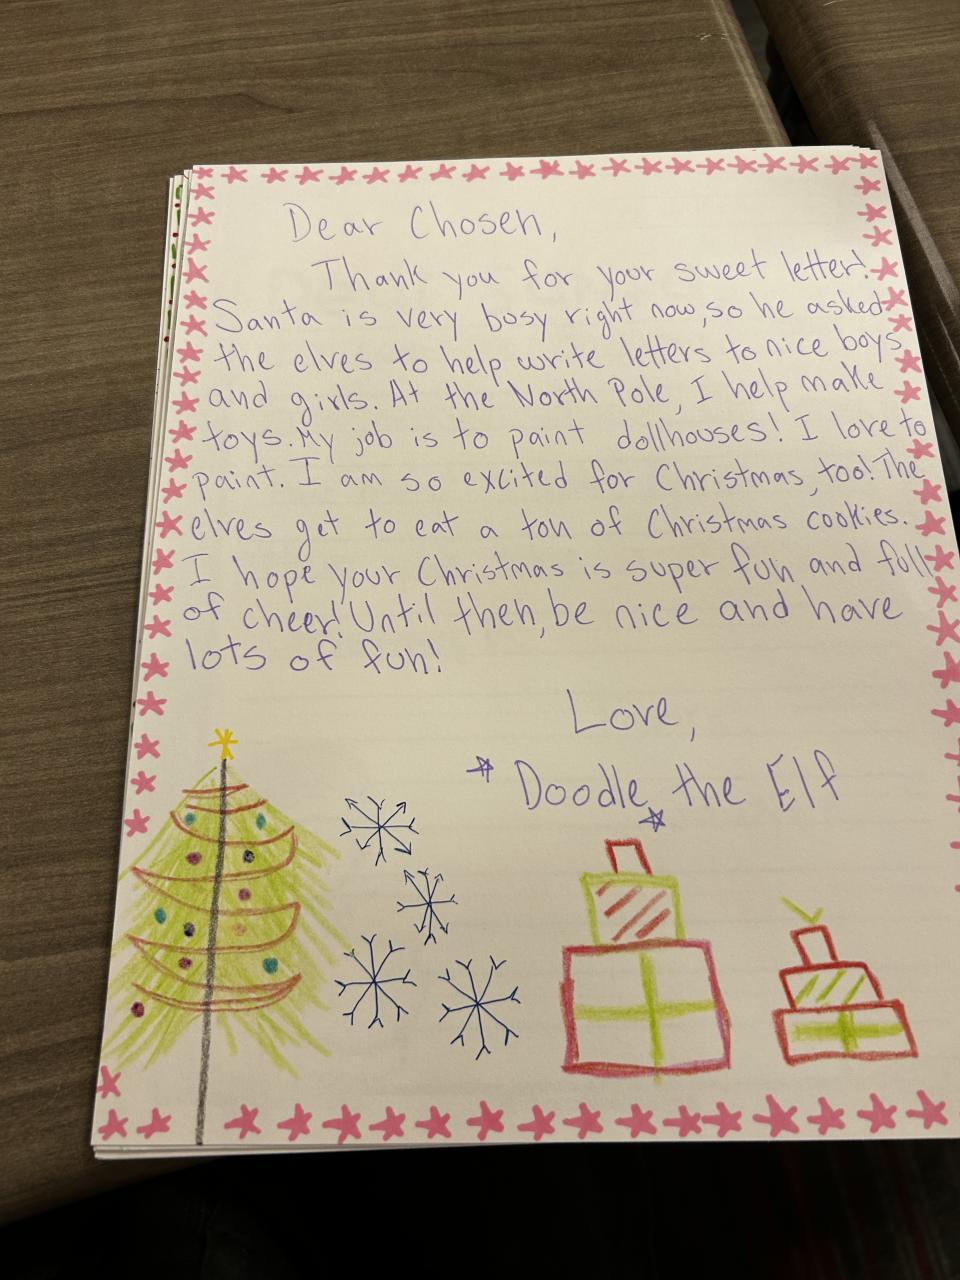 Dear Chosen,
Thank you for your sweet letter!
Santa is very busy right now, so he asked
the elves to help write letters to nice boys
and girls. At the North Pole, I help make
toys. My job is to paint dollhouses! I love to
paint. I am so excited for Christmas, too! The
elves get to eat a ton of Christmas cookies.
I hope your Christmas is super fun and full
of cheer! Until then, be nice and have
lots of fun!
Love,
Doodle the Elf